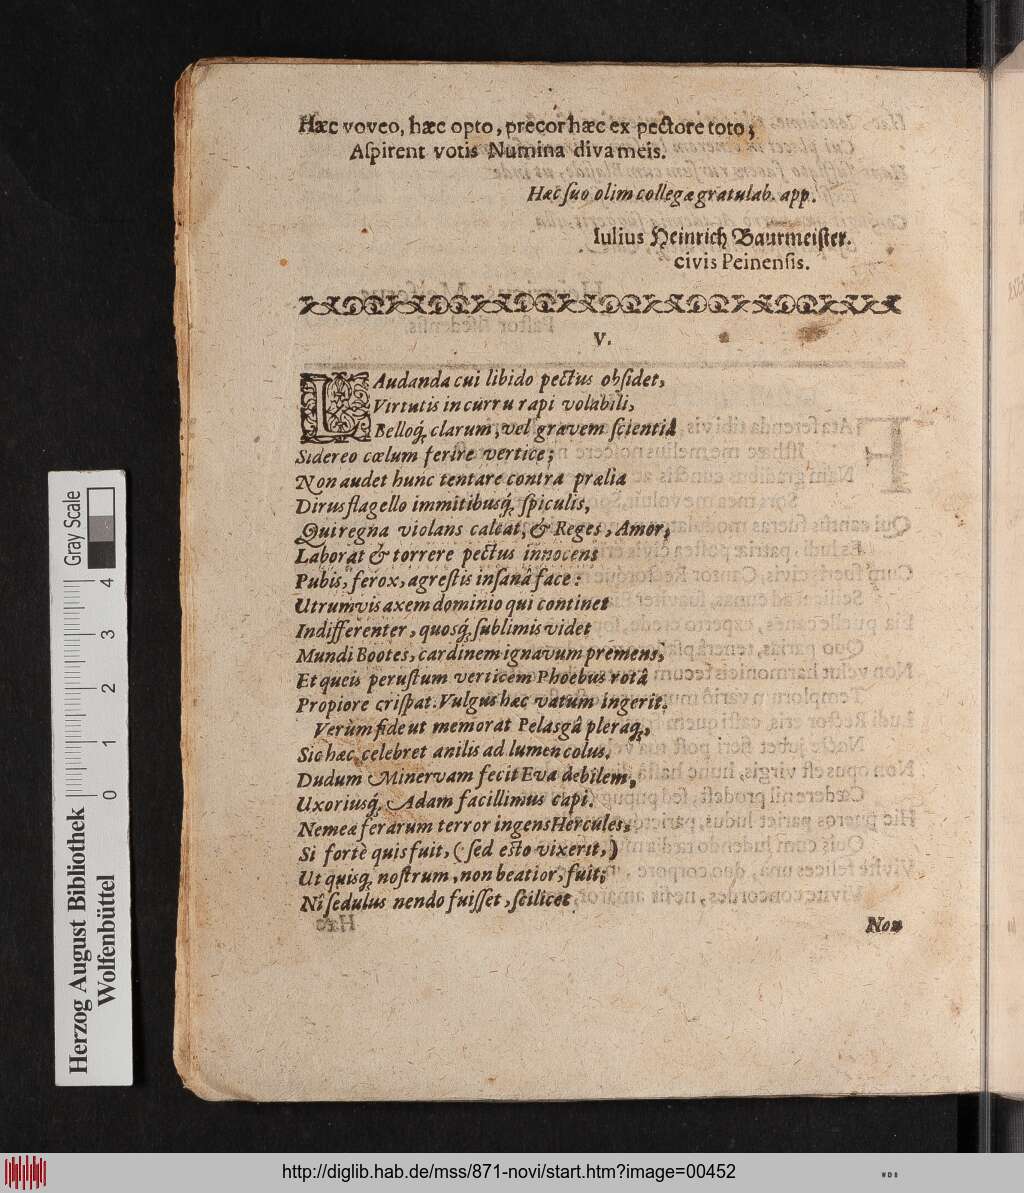 Hæc voveo, hæc opto, precor hæc ex pectore toto;
Aſpirent votis Numina diva meis.
Hæc ſuo olim collegæ gratulab. app.
Iulius Heinrich Baurmeiſter.
civis Peinenſis.
V.
LAudanda cui libido pectus obſidet,
Virtutis in curru rapi volabili,
Belloq́; clarum, vel grævem ſcientiâ
Sidereo cœlum ferire vertice;
Non audet hunc tentare contra prælia
Dirus flagello immitibusq́; ſpiculis,
Qui regna violans calcat, & Reges, Amor,
Laborat & torrere pectus innocens
Pubis, ferox, agreſtis inſanâ face:
Utrumvis axem dominio qui continet
Indifferenter, quosq́; ſublimis videt
Mundi Bootes, cardinem ignavum premens,
Et queis peruſtum verticem Phoebus rotâ
Propiore criſpat. Vulgus hæc vatum ingerit.
Verùm fide ut memorat Pelasgâ pleraq́;,
Sic hæc celebret anilis ad lumen colus.
Dudum Minervam fecit Eva debilem,
Uxoriusq́; Adam facillimus capi.
Nemeæ ferarum terror ingens Hercules,
Si fortè quis fuit, (ſed eſto vixerit,)
Ut quisq́; noſtrum, non beatior, fuit;
Nî ſedulus nendo fuiſſet, ſcilicet
Non
Gray Scale
0 1 2 3 4
Herzog August Bibliothek
Wolfenbüttel
http://diglib.hab.de/mss/871-novi/start.htm?image=00452